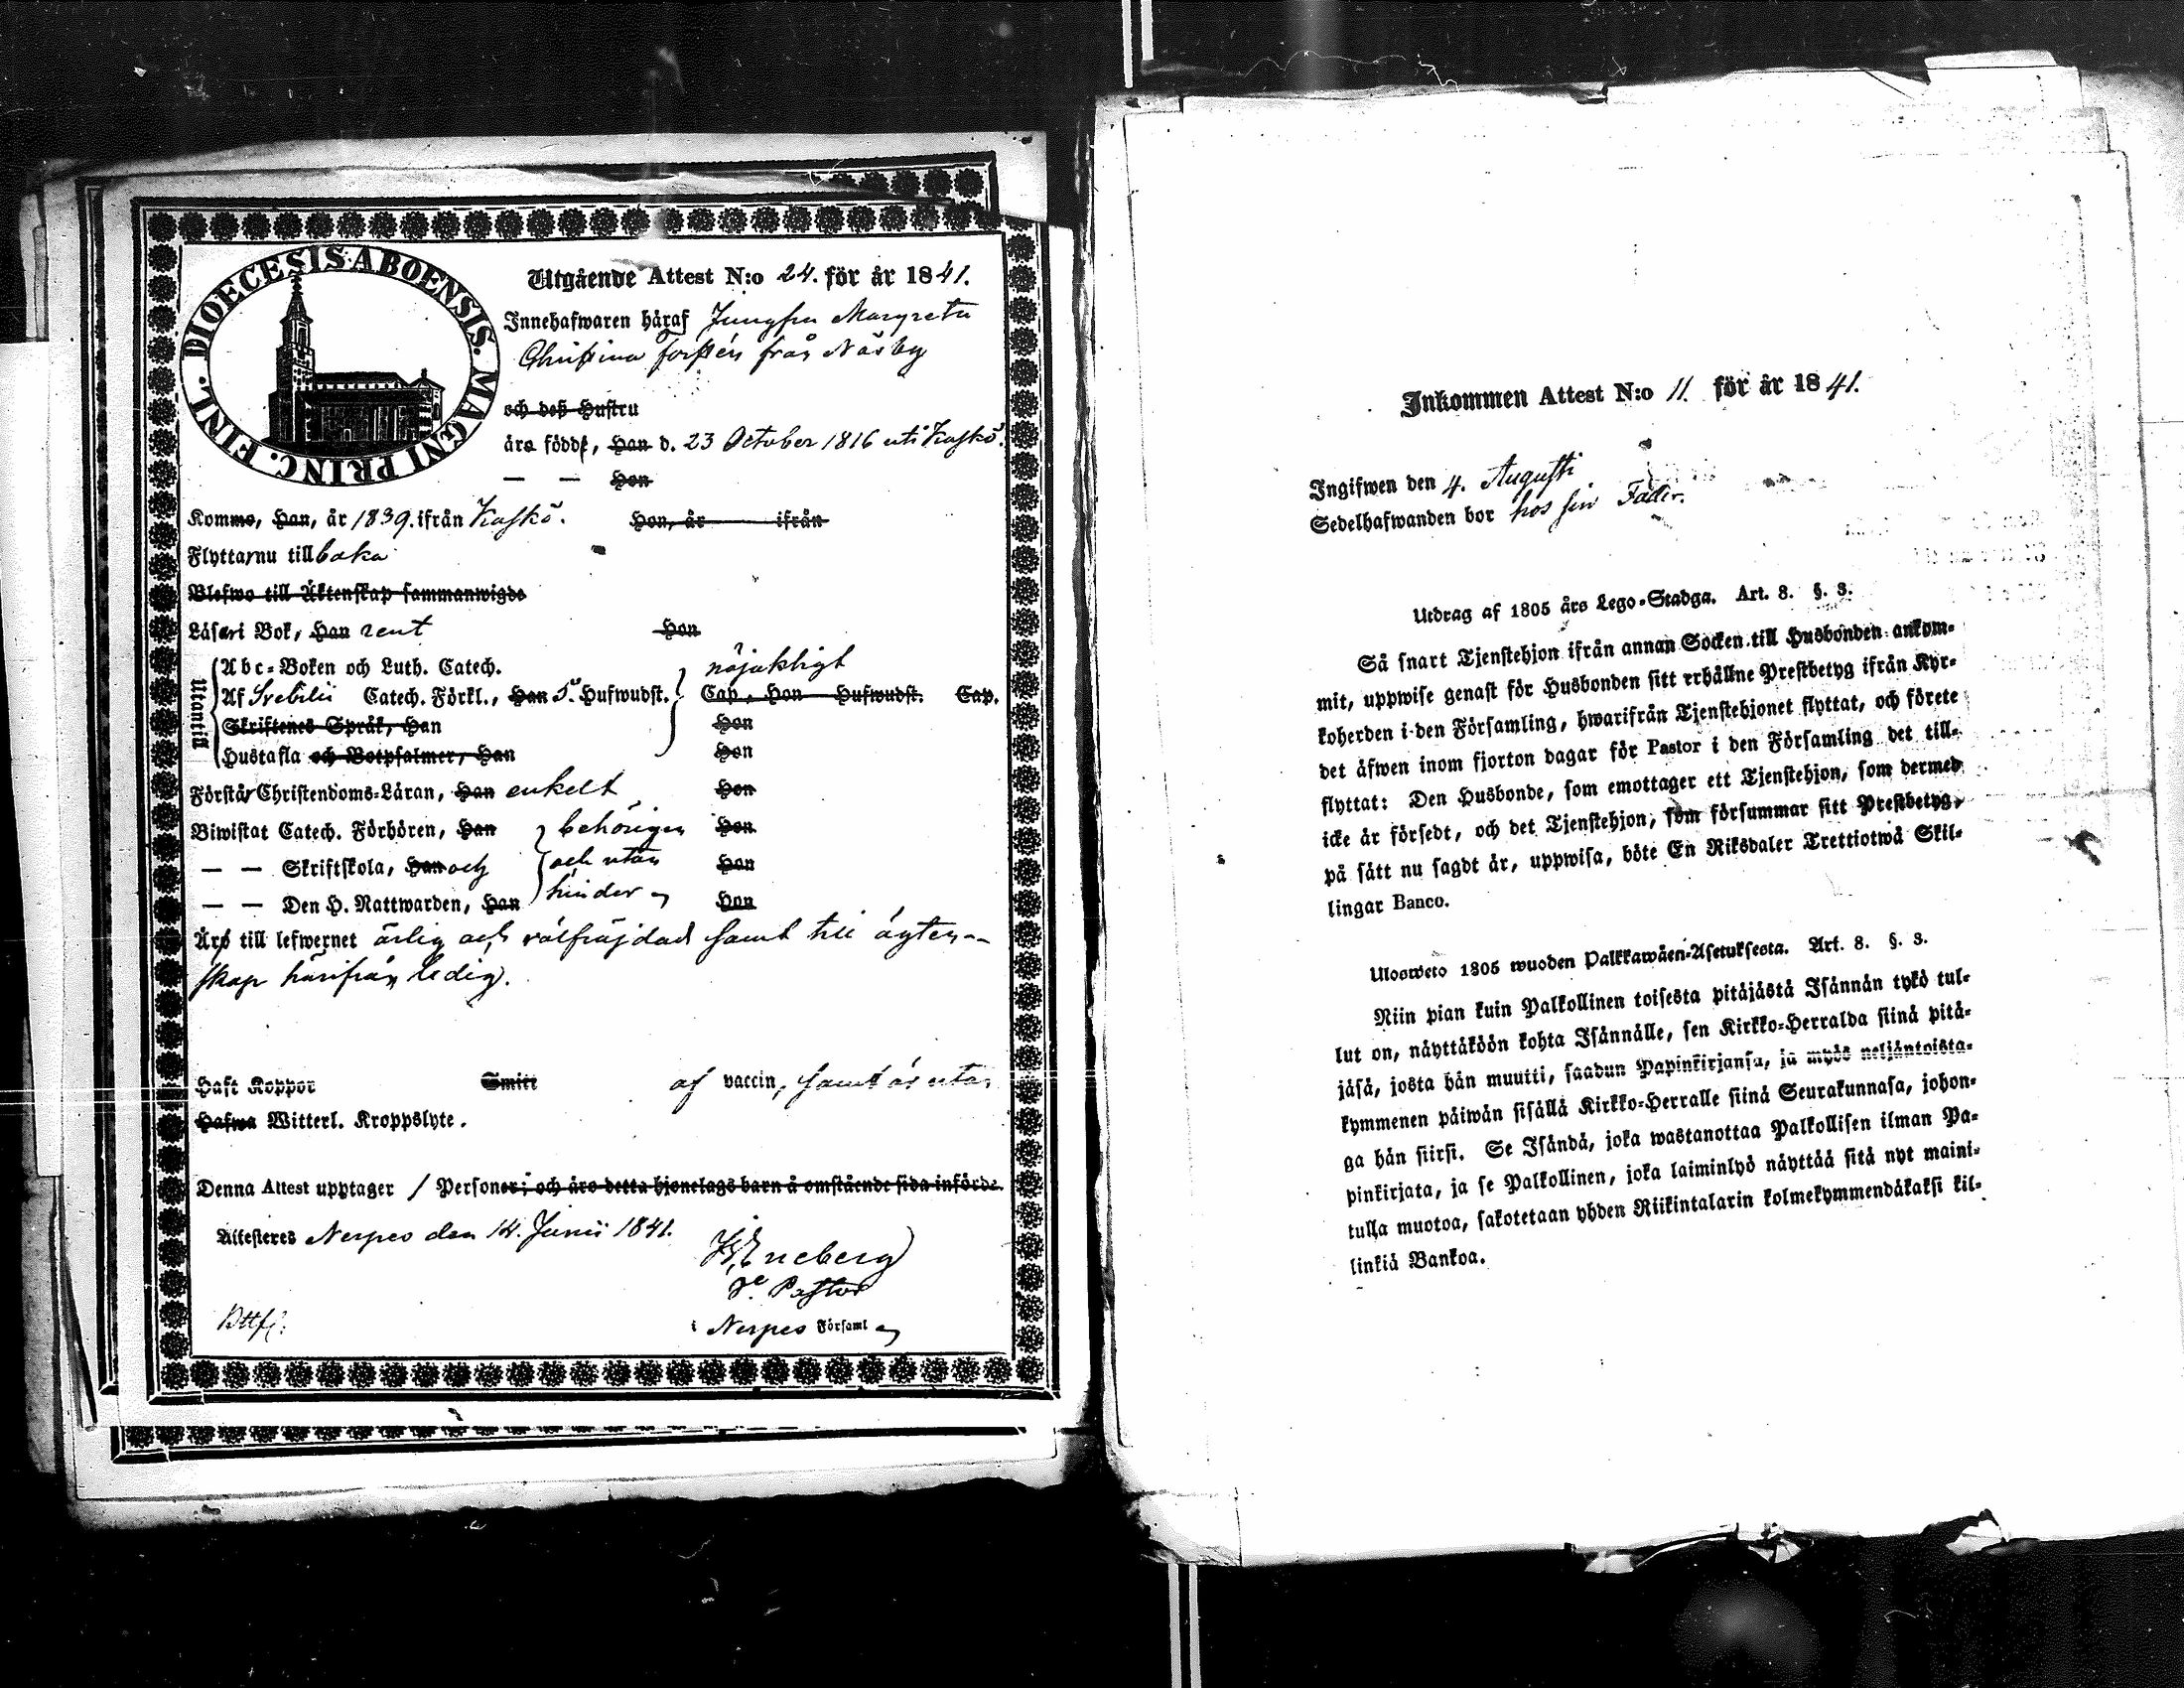 DIOECESIS ABOENSIS. MAGNI PRINC. FINL.
Utgående Attest N:o 24. för år 1841.
Innehafwaren häraf Jungfru Margreta
Christina Forsten från Näsby
och deß Hustru
äro födde, Han d. 23 October 1816 uti Kaskö.
— — Hon
Kommo, Han, år 1839. ifrån Kaskö. Hon, år ifrån
Flyttar nu tillbaka
Blefwo till Äktenskap sammanwigde
Läser i Bok, Han rent Hon
Utantill
Abc-Boken och Luth. Catech. nöjaktligt
Af Svebilii Catech. Förkl., Han 5. Hufwudst. Cap, Hon Hufwudst. Cap.
Skriftenes Språk, Han Hon
Hustafla och Botpsalmer, Han Hon
Förstår Christendoms-Läran, Han enkelt Hon
Biwistat Catech. Förhören, Han behörigen Hon
— — Skriftskola, Han och och utan Hon
— — Den H. Nattwarden, Han hinder Hon
Äro till lefwernet ärlig och välfräjdad samt till ägten-
skap härifrån ledig.
Haft Koppor Smitt af vaccin, samt är utan
Hafwa Witterl. Kroppslyte.
Denna Attest upptager 1 Personer i och äro detta hjonelags barn å omstående sida införde.
Attesteres Nerpes den 14. Junii 1841.
Eneberg
Pastor
i Nerpes Församl
Inkommen Attest N:o 11. för år 1841.
Ingifwen den 4. Augusti
Sedelhafwanden bor hos sin Fader.
Utdrag af 1805 års Lego-Stadga. Art. 8. §. 3.
Så snart Tjenstehjon ifrån annan Socken till Husbonden ankom-
mit, uppwise genast för Husbonden sitt erhållne Prestbetyg ifrån Kyr-
koherden i den Församling, hwarifrån Tjenstehjonet flyttat, och förete
det äfwen inom fjorton dagar för Pastor i den Församling det till-
flyttat: Den Husbonde, som emottager ett Tjenstehjon, som dermed
icke är försedt, och det Tjenstehjon, som försummar sitt Prestbetyg,
på sätt nu sagdt är, uppwisa, böte En Riksdaler Trettiotwå Skil-
lingar Banco.
Ulosweto 1805 wuoden Palkkawäen-Asetuksesta. Art. 8. §. 3.
Niin pian kuin Palkollinen toisesta pitäjästä Isännän tykö tul-
lut on, näyttäköön kohta Isännälle, sen Kirkko-Herralda siinä pitä-
jäsä, josta hän muutti, saadun Papinkirjansa, ja myös neljäntoista-
kymmenen päiwän sisällä Kirkko-Herralle siinä Seurakunnasa, johon-
ga hän siirsi. Se Isändä, joka wastanottaa Palkollisen ilman Pa-
pinkirjata, ja se Palkollinen, joka laiminlyö näyttää sitä nyt maini-
tulla muotoa, sakotetaan yhden Riikintalarin kolmekymmendäkaksi kil-
linkiä Bankoa.